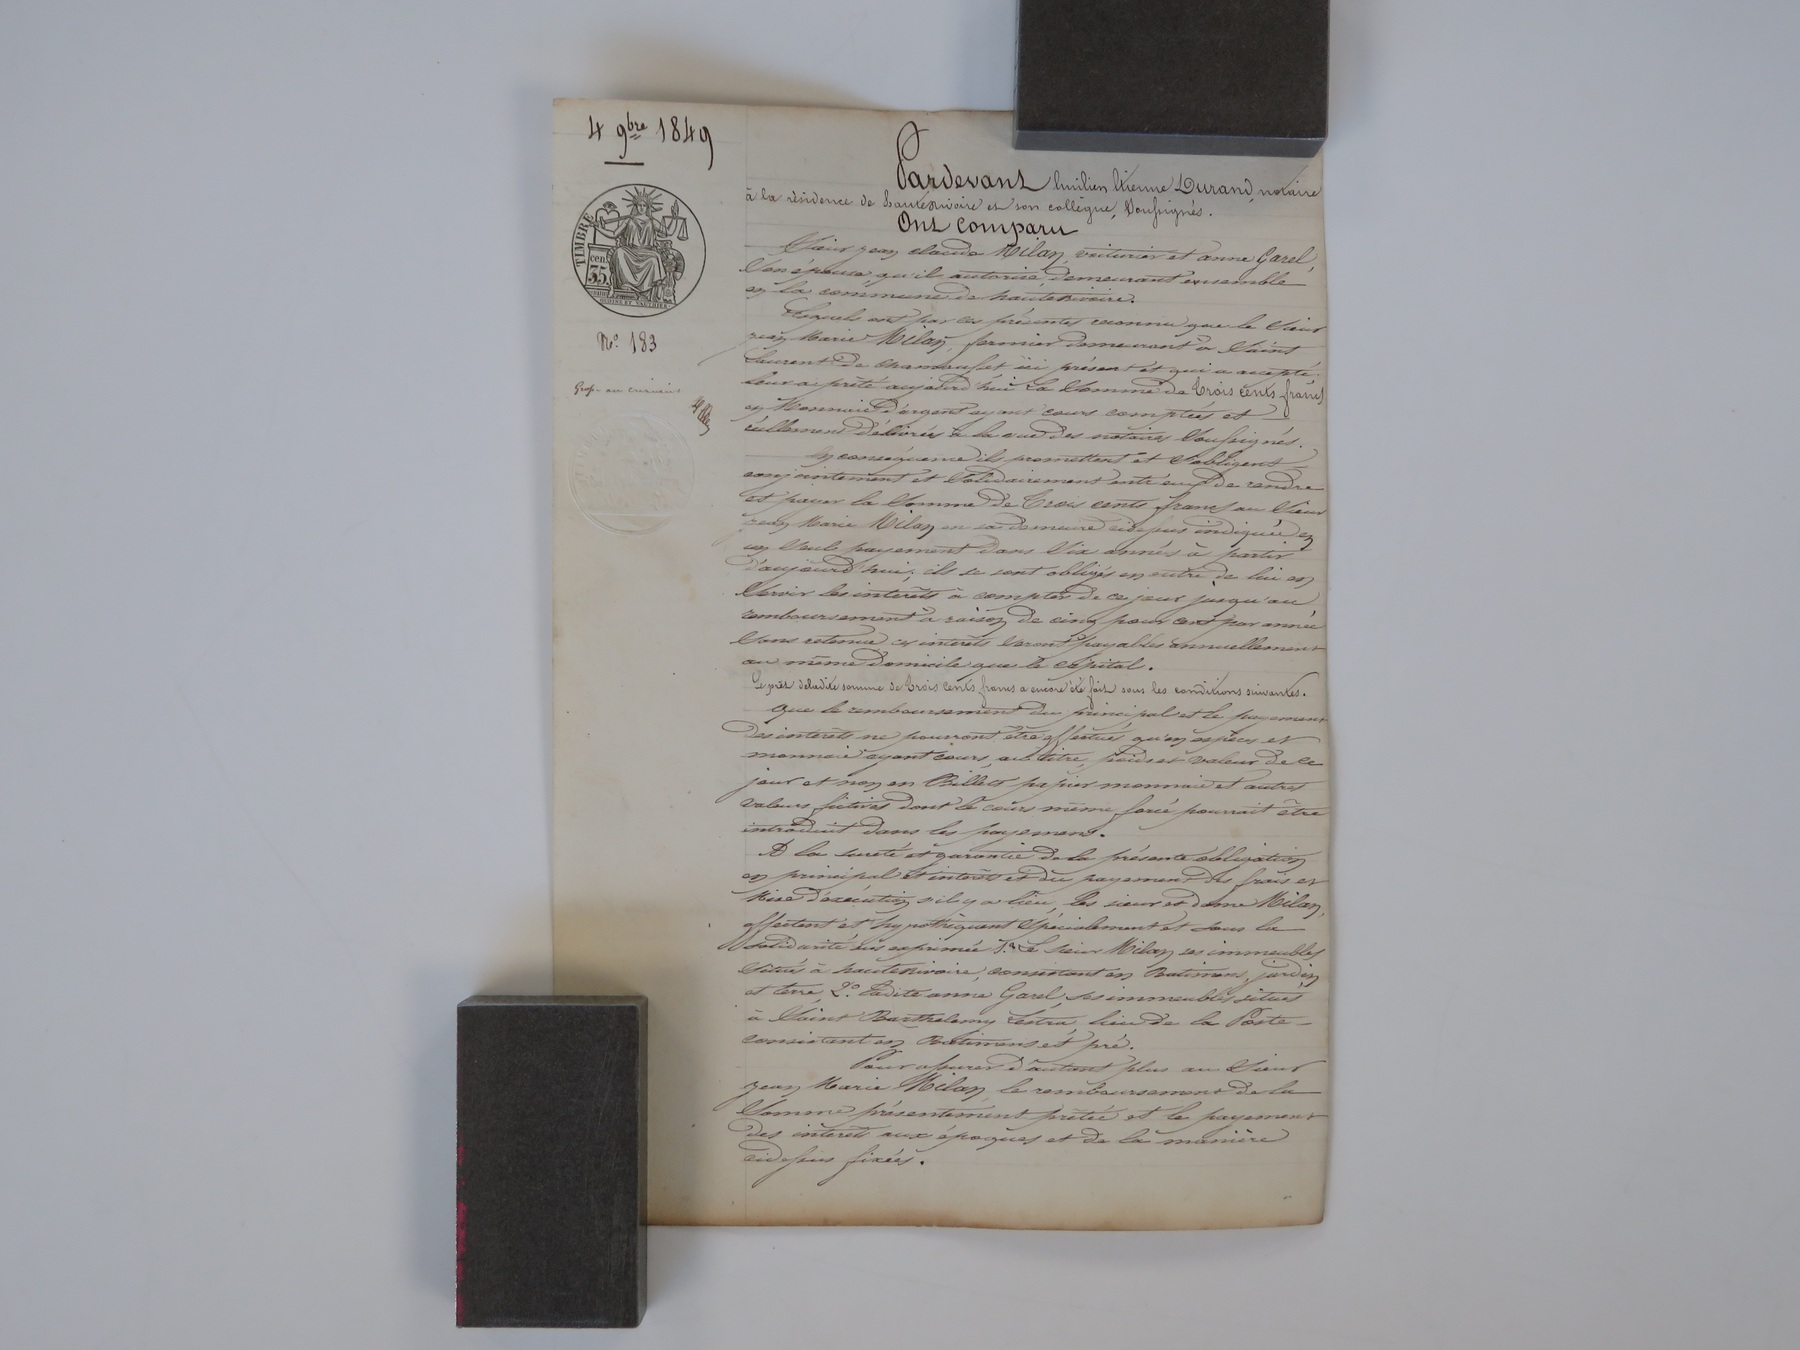 4 9bre 1849
TIMBRE
cen.
35
N° 183
Pardevant Emilien Etienne Durand, notaire
à la résidence de hauterivoire et son collègue, Soussignés.
Ont comparu
Sieur jean claude Milan, voiturier et anne Garel,
Son épouse qu'il autorise, demeurant ensemble
en la commune de hauterivoire.
Lesquels ont par ces présentes reconnu que le Sieur
jean Marie Milan, fermier demeurant à Saint
Laurent de chamousset ici présent et qui a accepté
leur a prêté aujourd'hui La Somme de trois cents francs
en Monnaie d'argent ayant cours comptées et
réellement délivrées à la vue des notaires Soussignés.
En conséquence ils promettent et s'obligent
conjointement et Solidairement entr'eux de rendre
et payer la Somme de trois cents francs au Sieur
jean Marie Milan en sa demeure cidessus indiquée en
un Seul payement dans Six années à partir
d'aujourd'hui; ils se sont obligés en outre de lui en
Servir les intérêts à compter de ce jour jusqu'au
remboursement à raison de cinq pour cent par année
Sans retenue ces intérêts Seront payables annuellement
au même domicile que le capital.
Le prêt deladite somme de trois cents francs a encore été fait sous les conditions suivantes.
Que le remboursement du principal et le payement
des intérêts ne pourront être effectués qu'en espèces et
monnaie ayant cours, au titre, poids et valeur de ce
jour et non en Billets papier monnaie et autres
valeurs fictives dont le cours même forcé pourrait être
introduit dans les payemens.
A la sureté et garantie de la présente obligation
en principal et intérêts et du payement des frais et
Mise d'exécution s'il y a lieu, les sieur et dame Milan,
affectent et hypothèquent Spécialement et Sous la
Solidarité sus exprimée 1.° Le sieur Milan ses immeubles
Situés à hauterivoire, consistant en Batimens, jardin
et terre, 2.° Ladite anne Garel, ses immeubles situés
à Saint Barthelemy Lestra, lieu de la Poste
consistant en Batimens et pré.
Pour assurer d'autant plus au Sieur
jean Marie Milan, le remboursement de la
Somme présentement prêtée et le payement
des intérêts aux époques et de la manière
cidessus fixées.